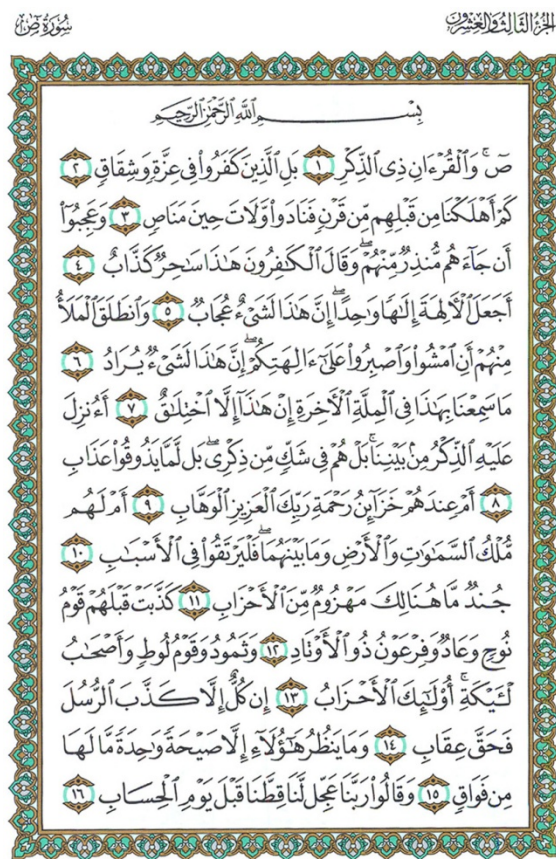 سُورَةُ صٓ
الجُزْءُ الثَّالِثُ وَالعِشْرُونَ
بِسْمِ ٱللَّهِ ٱلرَّحْمَٰنِ ٱلرَّحِيمِ
صٓۚ وَٱلْقُرْءَانِ ذِى ٱلذِّكْرِ ١ بَلِ ٱلَّذِينَ كَفَرُوا۟ فِى عِزَّةٍ وَشِقَاقٍ ٢
كَمْ أَهْلَكْنَا مِن قَبْلِهِم مِّن قَرْنٍ فَنَادَوا۟ وَّلَاتَ حِينَ مَنَاصٍ ٣ وَعَجِبُوٓا۟
أَن جَآءَهُم مُّنذِرٌ مِّنْهُمْۖ وَقَالَ ٱلْكَٰفِرُونَ هَٰذَا سَٰحِرٌ كَذَّابٌ ٤
أَجَعَلَ ٱلْءَالِهَةَ إِلَٰهًا وَٰحِدًاۖ إِنَّ هَٰذَا لَشَىْءٌ عُجَابٌ ٥ وَٱنطَلَقَ ٱلْمَلَأُ
مِنْهُمْ أَنِ ٱمْشُوا۟ وَٱصْبِرُوا۟ عَلَىٰٓ ءَالِهَتِكُمْۖ إِنَّ هَٰذَا لَشَىْءٌ يُرَادُ ٦
مَا سَمِعْنَا بِهَٰذَا فِى ٱلْمِلَّةِ ٱلْءَاخِرَةِ إِنْ هَٰذَآ إِلَّا ٱخْتِلَٰقٌ ٧ أَءُنزِلَ
عَلَيْهِ ٱلذِّكْرُ مِنۢ بَيْنِنَاۚ بَلْ هُمْ فِى شَكٍّ مِّن ذِكْرِىۖ بَل لَّمَّا يَذُوقُوا۟ عَذَابِ
٨ أَمْ عِندَهُمْ خَزَآئِنُ رَحْمَةِ رَبِّكَ ٱلْعَزِيزِ ٱلْوَهَّابِ ٩ أَمْ لَهُم
مُّلْكُ ٱلسَّمَٰوَٰتِ وَٱلْأَرْضِ وَمَا بَيْنَهُمَاۖ فَلْيَرْتَقُوا۟ فِى ٱلْأَسْبَٰبِ ١٠
جُندٌ مَّا هُنَالِكَ مَهْزُومٌ مِّنَ ٱلْأَحْزَابِ ١١ كَذَّبَتْ قَبْلَهُمْ قَوْمُ
نُوحٍ وَعَادٌ وَفِرْعَوْنُ ذُو ٱلْأَوْتَادِ ١٢ وَثَمُودُ وَقَوْمُ لُوطٍ وَأَصْحَٰبُ
لْـَٔيْكَةِۚ أُو۟لَٰٓئِكَ ٱلْأَحْزَابُ ١٣ إِن كُلٌّ إِلَّا كَذَّبَ ٱلرُّسُلَ
فَحَقَّ عِقَابِ ١٤ وَمَا يَنظُرُ هَٰٓؤُلَآءِ إِلَّا صَيْحَةً وَٰحِدَةً مَّا لَهَا
مِن فَوَاقٍ ١٥ وَقَالُوا۟ رَبَّنَا عَجِّل لَّنَا قِطَّنَا قَبْلَ يَوْمِ ٱلْحِسَابِ ١٦